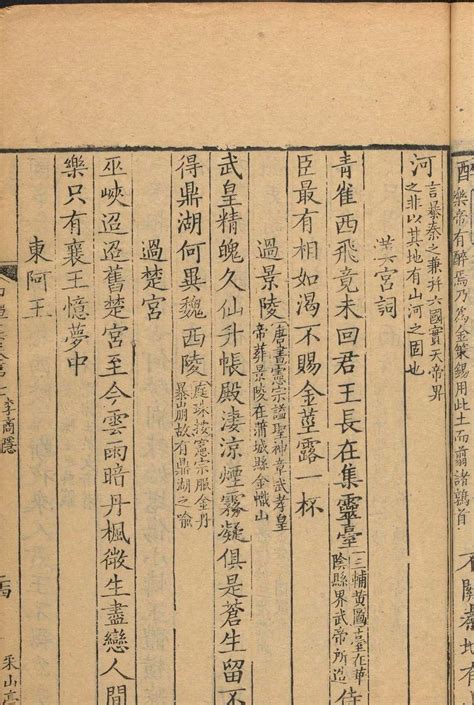 醉樂帝有醉焉乃為金策錫用此土而翦諸鶉首不關秦地有
河言暴秦之兼并六國實天帝畀之非以其地有山河之固也
漢宮詞
青雀西飛竟未回君王長在集靈臺三輔黃圖臺在華陰縣界武帝所造侍
臣最有相如渴不賜金莖露一杯
過景陵唐書憲宗謚聖神章武孝皇帝葬景陵在蒲城縣金幟山
武皇精魄久仙升帳殿淒涼煙霧凝俱是蒼生留不
得鼎湖何異魏西陵庭珠按憲宗服金丹暴崩故有鼎湖之喻
過楚宮
巫峽迢迢舊楚宮至今雲雨暗丹楓微生盡戀人間
樂只有襄王憶夢中
東阿王
李商隱
采山亭